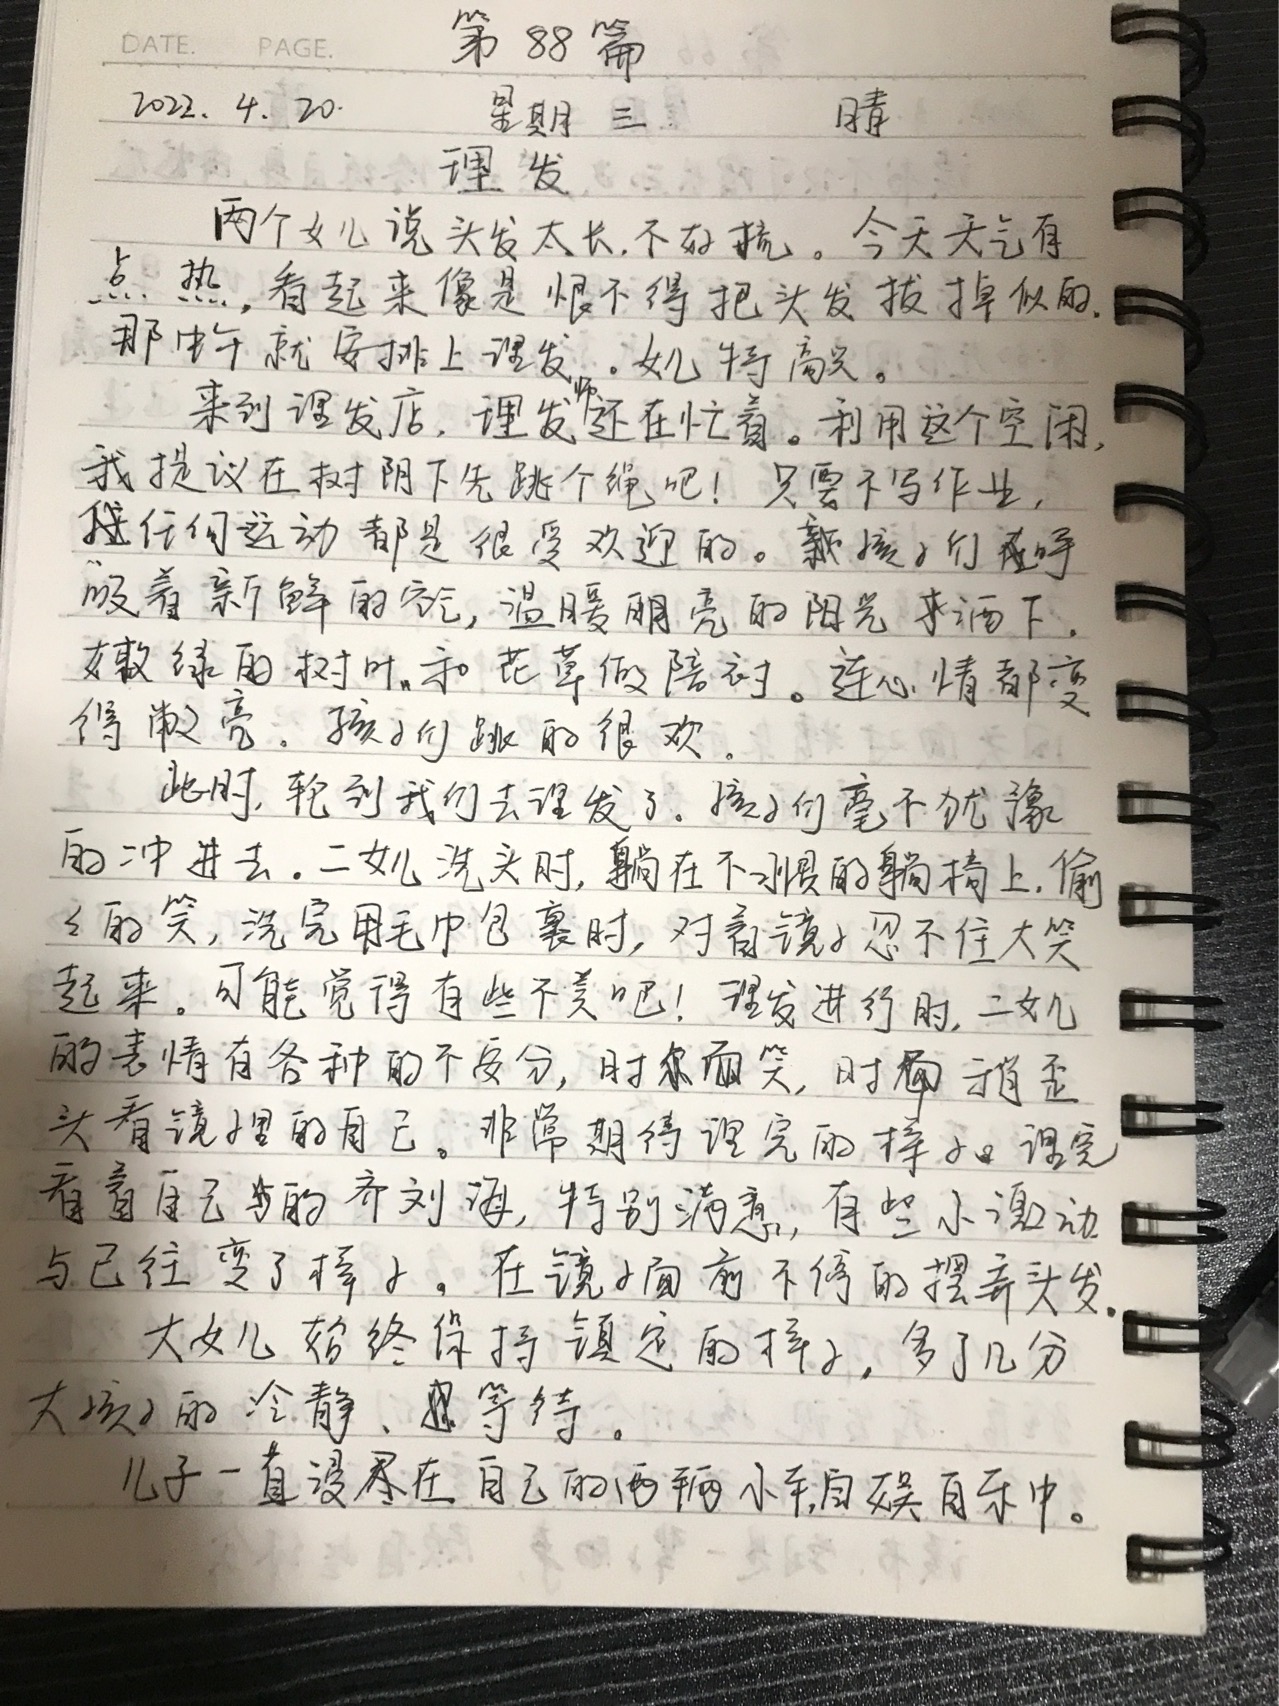 DATE. PAGE. 第88篇
2022.4.20. 星期三 晴
理发
两个女儿说头发太长,不好梳。今天天气有
点热,看起来像是恨不得把头发拔掉似的.
那中午就安排上理发。女儿特高兴。
来到理发店,理发师还在忙着。利用这个空闲,
我提议在树阴下先跳个绳吧!只要不写作业,
任何运动都是很受欢迎的。孩子们呼
吸着新鲜的空气,温暖明亮的阳光洒下,
嫩绿的树叶和花草做陪衬。连心情都变
得敞亮。孩子们跳的很欢。
此时,轮到我们去理发了。孩子们毫不犹豫
的冲进去。二女儿洗头时,躺在不习惯的躺椅上,偷
偷的笑,洗完用毛巾包裹时,对着镜子忍不住大笑
起来。可能觉得有些不美吧!理发进行时,二女儿
的表情有各种的不安分,时而笑,时而稍歪
头看镜子里的自己。非常期待理完的样子。理完
看着自己的齐刘海,特别满意,有些小激动
与已往变了样子。在镜子面前不停的摆弄头发.
大女儿始终保持镇定的样子,多了几分
大孩子的冷静、等待。
儿子一直沒尽在自己的两辆小车,自娱自乐中。